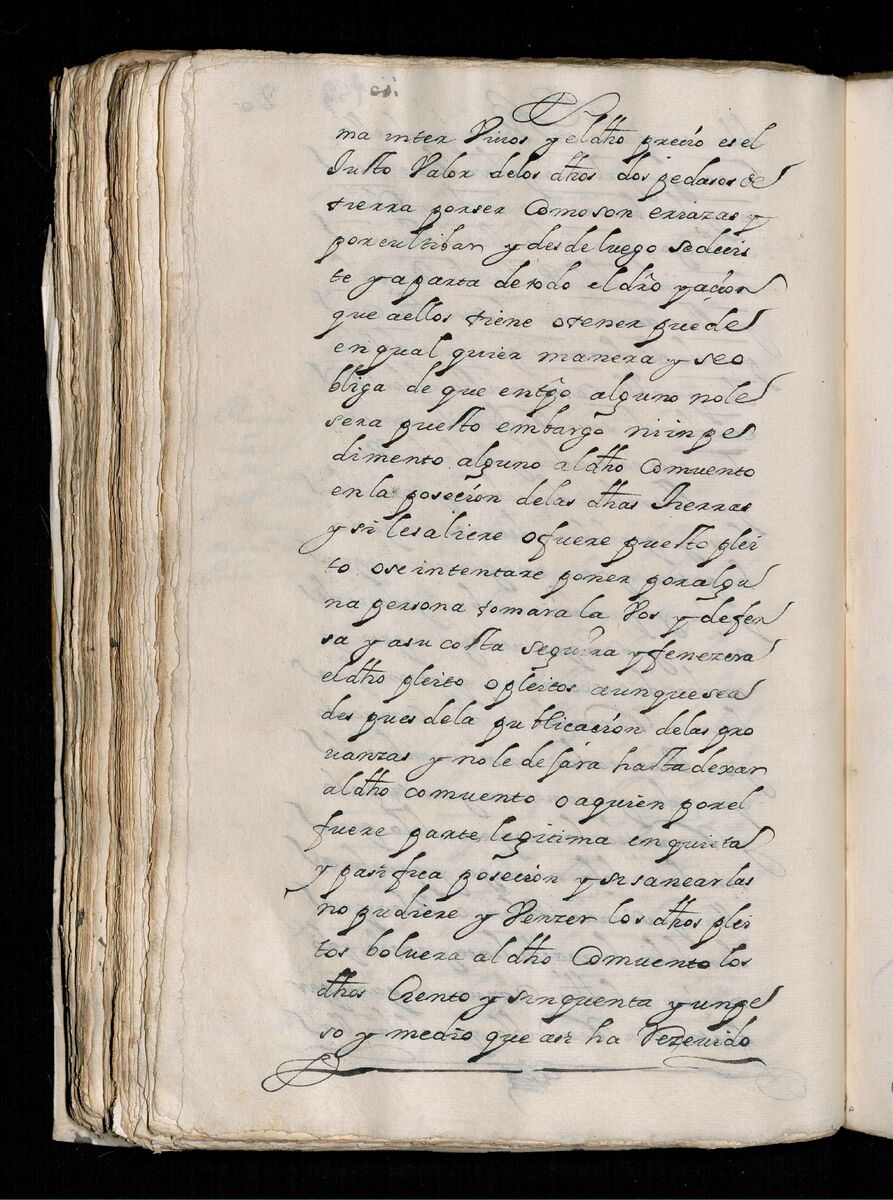 ma inter Viuos y el dho precio es el
Justo Valor delos dhos dos pedasos de
tierra por ser Como son eriazas y
por cultibar y desde luego se decis
te y aparta de todo el dro y acion
que aellos tiene o tener puede
en qual quier manera y se o
bliga de que en tpo alguno no le
sera puesto embargo ni inpe
dimento alguno al dho Comuento
en la poseción delas dhas Tierras
y si le saliere o fuere puesto plei
to o se intentare poner por algu
na persona tomara la Vos y defen
sa y a su costa seguira y fenezera
el dho pleito o pleitos aunque sea
despues dela publicación delas pro
uanzas y no le dejára hasta dexar
al dho comuento o a quien por el
fuere parte legitima en quieta
y pasifica poseción y si sanearlas
no pudiere y Venzer los dhos plei
tos boluera al dho Comuento los
dhos Ciento y sinquenta y un pe
so y medio que asi ha Rezeuido